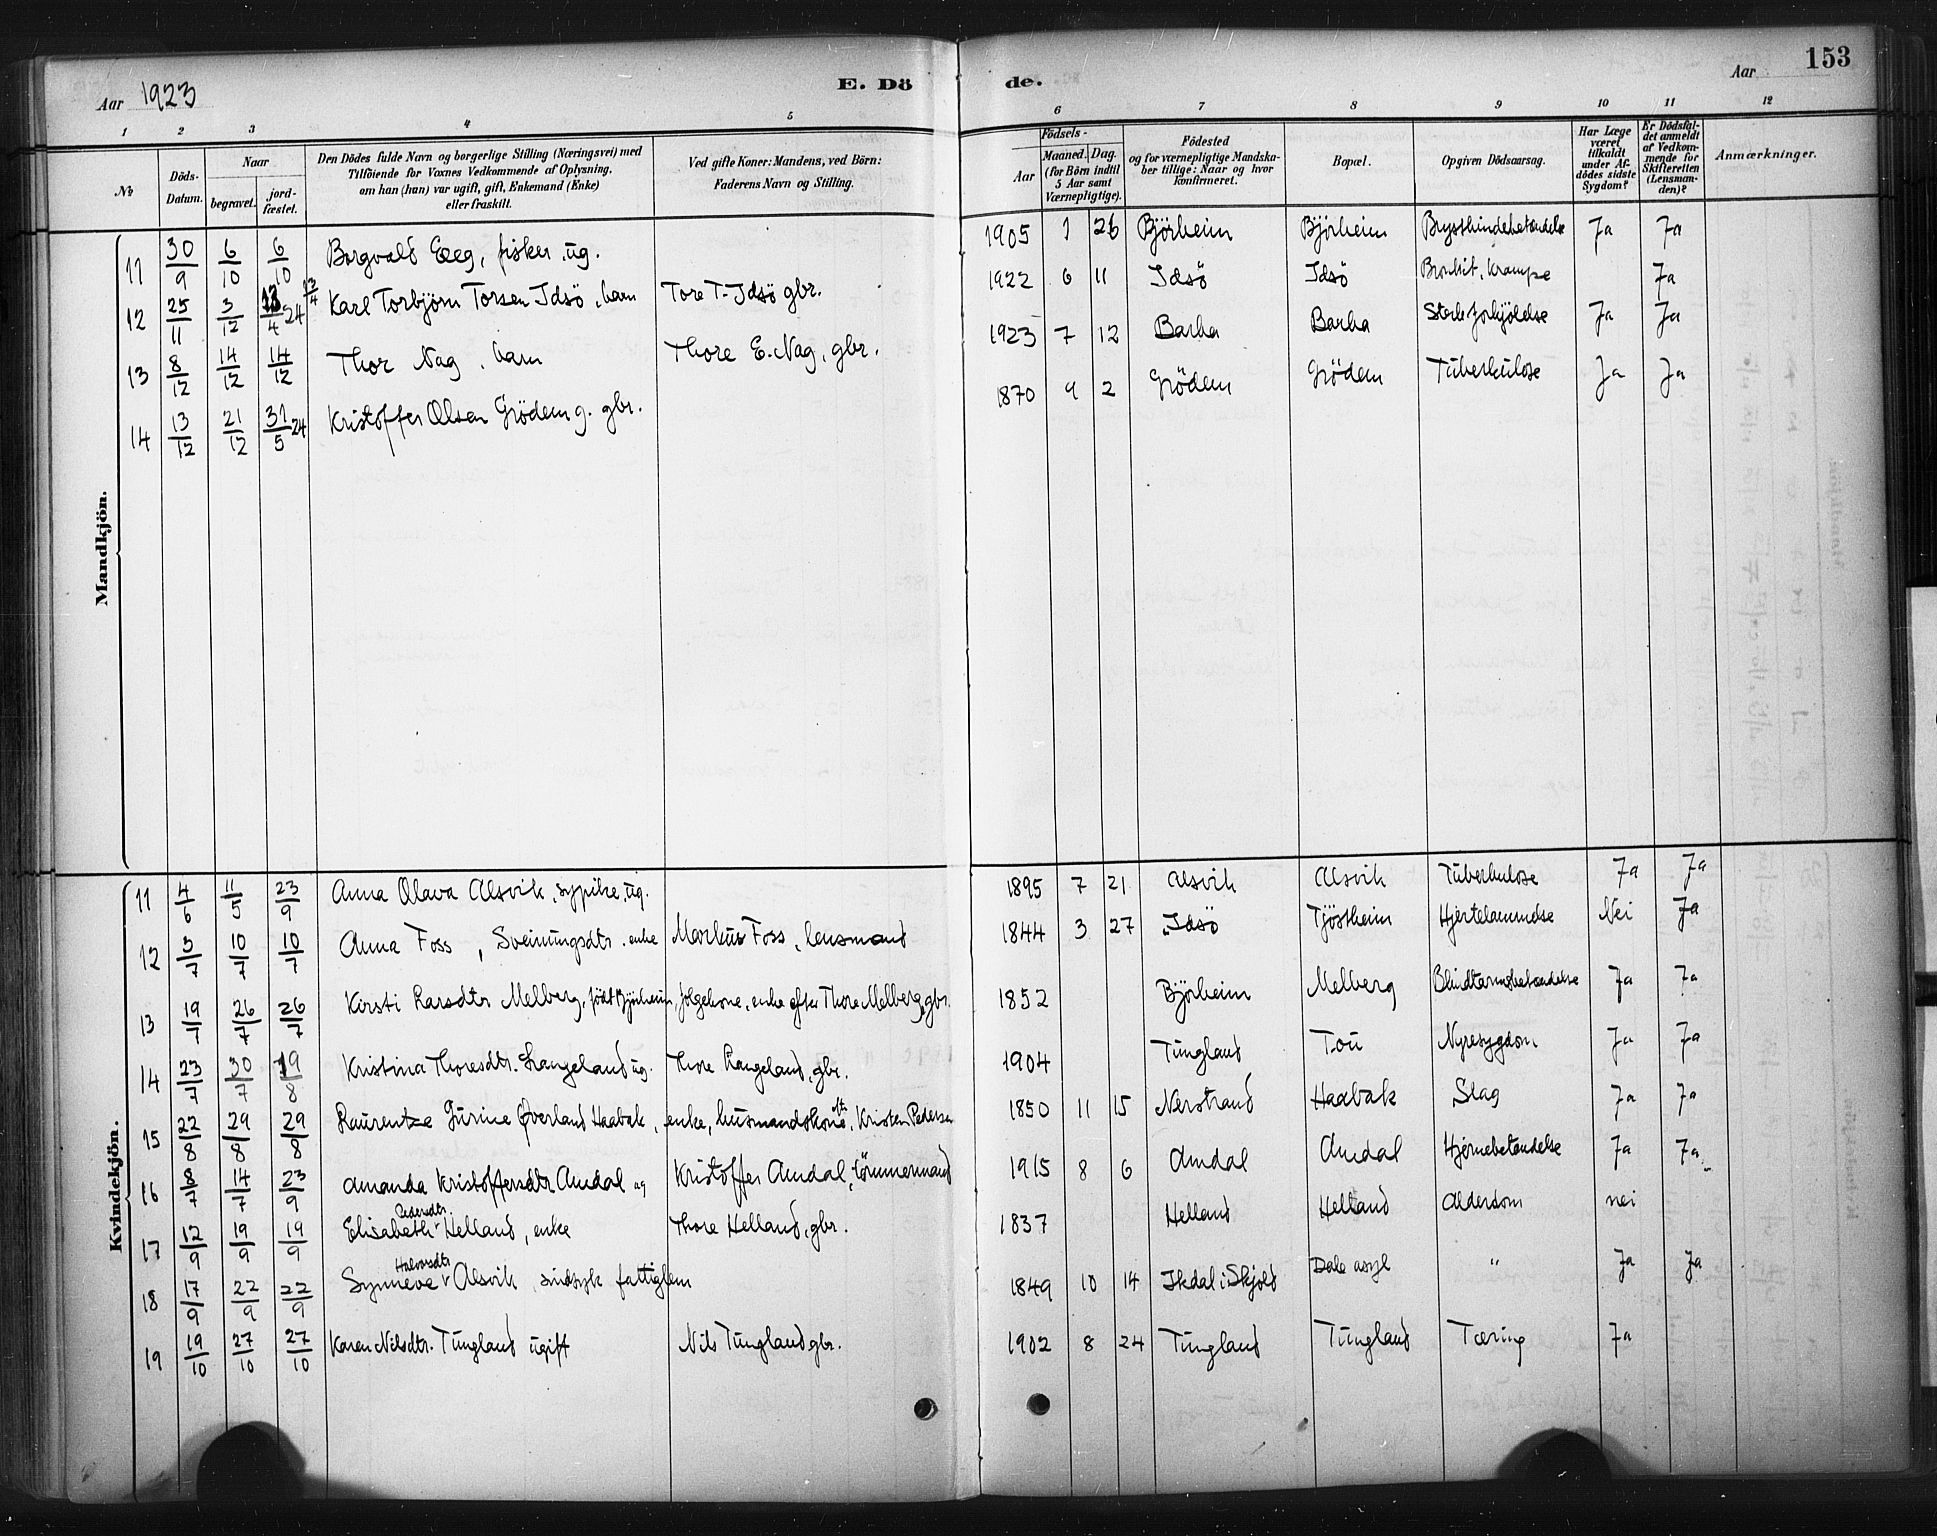 Aar 1923 E. Dö de. Aar 153
1 2 3 4 5 6 7 8 9 10 11 12
No Döds-Datum. Naar begravet. jordfæstet. Den Dödes fulde Navn og borgerlige Stilling (Næringsvei) med Tilföiende for Voxnes Vedkommende af Oplysning. om han (hun) var ugift, gift, Enkemand (Enke) eller fraskilt. Ved gifte Koner: Mandens, ved Börn: Faderens Navn og Stilling. Födsels- Aar Maaned. Dag. (for Börn indtil 5 Aar samt Værnepligtige). Födested og for værnepligtige Mandskaber tillige: Naar og hvor konfirmeret. Bopæl. Opgiven Dödsaarsag. Har Læge været tilkaldt under Afdödes sidste Sygdom? Er Dödsfaldet anmeldt af Vedkommende for Skifteretten (Lensmanden)? Anmærkninger.
Mandkjön.
11 30/9 6/10 6/10 Borgvald Eeg, fisker. ug. 1905 1 26 Björheim Björheim Brysthindebetændelse Ja Ja
12 25/11 3/12 13/4 24 13/4 Karl Torbjörn Torsen Idsö, barn Tore T. Idsö gbr. 1922 6 11 Idsö Idsö Bronkit, Krampe Ja
13 8/12 14/12 14/12 Thor Nag, barn Thore E. Nag, gbr. 1923 7 12 Barka Barka Sterk forkjölelse Ja Ja
14 13/12 21/12 31/5 24 Kristoffer Olsen Grödem g. gbr. 1870 9 2 Grödem Grödem Tuberkulose Ja Ja
Kvindekjön.
11 4/6 11/5 23/9 Anna Olava Alsvik, sypike, ug. 1895 7 21 Alsvik Alsvik Tuberkulose Ja Ja
12 3/7 10/7 10/7 Anna Foss, Sveinungsdtr. enke Markus Foss, lensmand 1844 3 27 Idsö Tjöstheim Hjertelammelse Nei Ja
13 19/7 26/7 26/7 Kirsti Larsdtr Melberg, født Björheim, folgekone, enke efter Thore Melberg, gbr. 1852 Björheim Melberg Blindtarmsbetændelse Ja Ja
14 23/7 30/7 19/8 Kristina Thoresdtr. Langeland ug. Thore Langeland, gbr. 1904 Tungland Tou Nyresygdom Ja Ja
15 22/8 29/8 29/8 Laurentze Gurine Øverland Haabak, enke, husmandskone eft. Kristen Pedersen 1850 11 15 Nerstrand Haabak Slag Ja Ja
16 8/7 14/7 23/9 Amanda Kristoffersdtr Amdal ug Kristoffer Amdal, tömmermand 1915 8 6 Amdal Amdal Hjernebetændelse Ja Ja
17 12/9 19/9 19/9 Elisabeth Pedersdtr. Helland, enke Thore Helland, gbr. 1837 Helland Helland Alderdom nei
18 17/9 22/9 22/9 Synneve Halvorsdtr Alsvik, sindssyk fattiglem 1849 10 14 Ikdal i Skjold Dale asyl " Ja Ja
19 19/10 27/10 27/10 Karen Nilsdtr. Tungland ugift Nils Tungland gbr. 1902 8 24 Tungland Tungland Tæring Ja